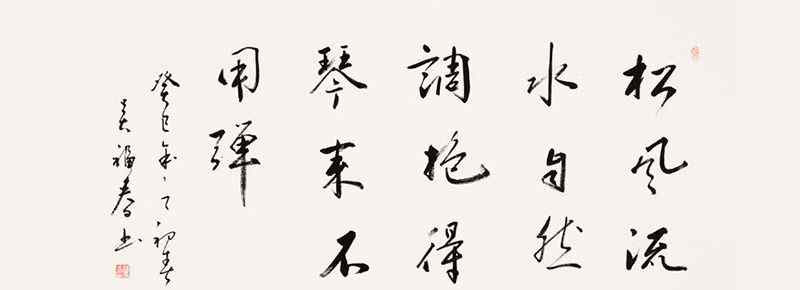 松风流
水自然
調抱得
琴来不
用弹
癸巳年之初春
吴福春书